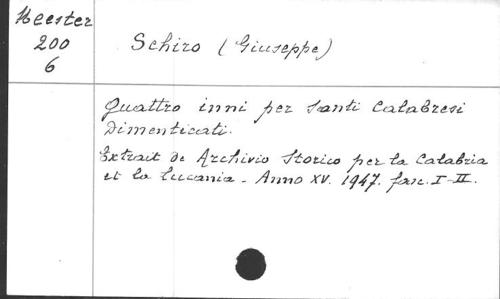 Meester
200
6
Schiro (Giuseppe)
Quattro inni per santi Calabresi
Dimenticati.
Extrait de Archivio Storico per la Calabria
et la Lucania - Anno XV. 1947. fasc. I-II.